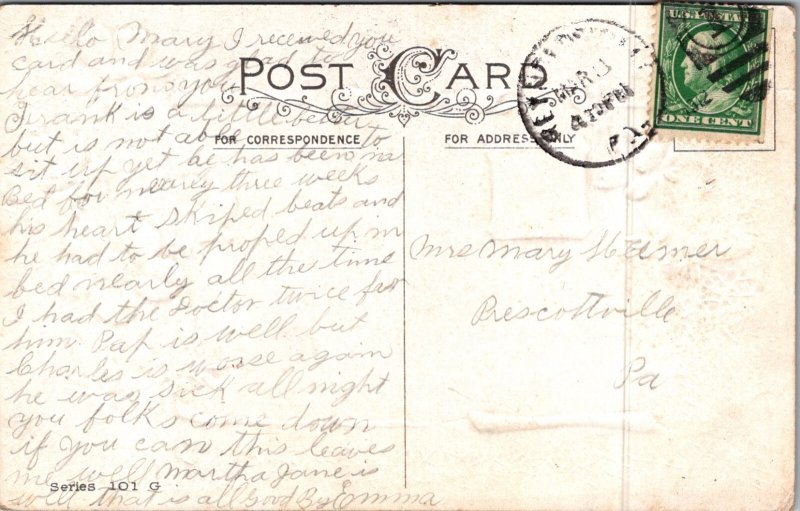 Hello Mary I received you
card and was glad to
hear from you
Frank is a little better
but is not able to
sit up yet he has been in
Bed for nearey three weeks
his heart skiped beats and
he had to be proped up in
bed nearly all the time
I had the Doctor twice for
him. Pap is well but
Charles is worse again
he was sick all night
you folks come down
if you can this leaves
me well Martha Jane is
well that is all Good By Emma
POST CARD
FOR CORRESPONDENCE
FOR ADDRESS ONLY
Series 101 G
MAR
PM
U.S. POSTAGE
ONE CENT
Mrs Mary
Prescottville
Pa